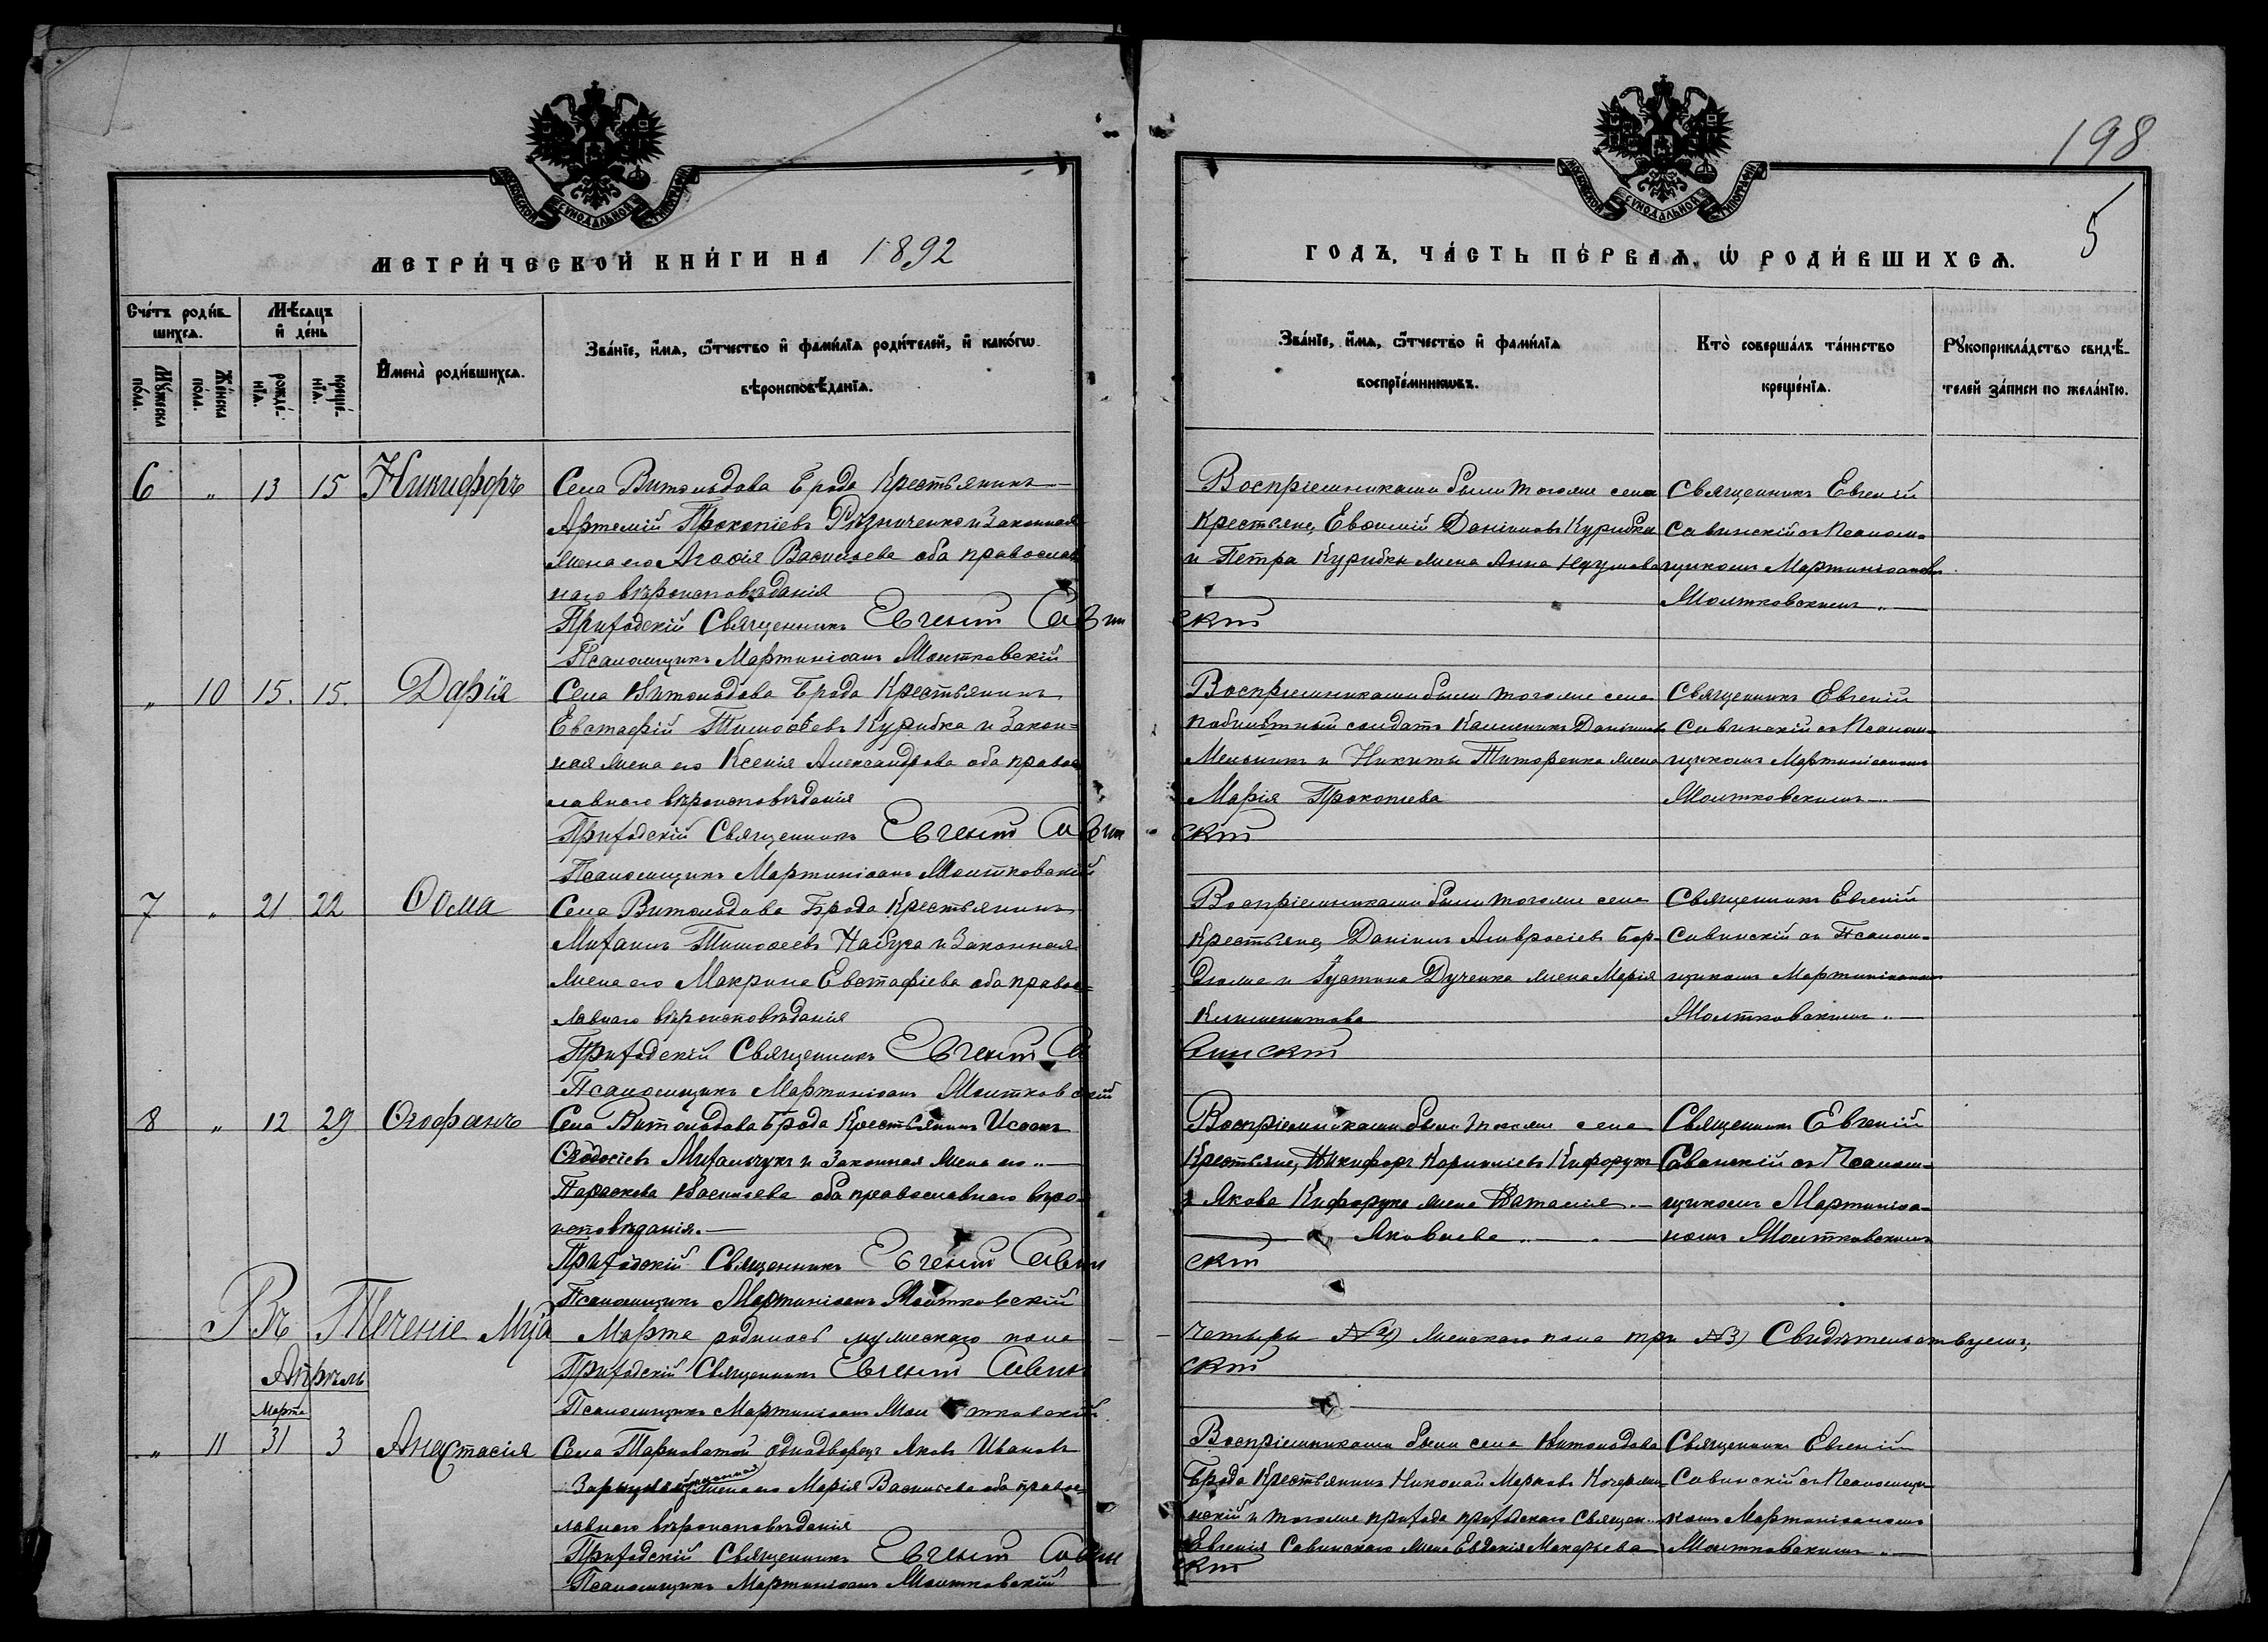 198
5
МОСКОВСКОЙ СѴНОДАЛЬНОЙ ТИПОГРАФІИ
МОСКОВСКОЙ СѴНОДАЛЬНОЙ ТИПОГРАФІИ
МЕТРИ́ЧЕСКОЙ КНИ́ГИ НА 1892
ГОДЪ, ЧА́СТЬ ПЕ́РВАѦ, Ѡ РОДИ́ВШИХСѦ.
Сче́тъ роди́в-
шихсѧ.
Мꙋ́жеска по́ла.
Же́нска пола.
Мѣ́сѧцъ
и҆ де́нь
рожде́-
нїѧ.
креще́-
нїѧ.
И҆мена̀ роди́вшихсѧ.
Зва́нїе, и҆́мѧ, ѻ҆́тчество и҆ фами́лїѧ роди́телей, и҆ како́гѡ
вѣроисповѣ́данїѧ.
Зва́нїе, и҆́мѧ, ѻ҆́тчество и҆ фами́лїѧ
воспрїе́мникѡвъ.
Кто̀ соверша́лъ та́инство
креще́нїѧ.
Рꙋкоприкла́дство свидѣ́-
телей за́писи по жела́нїю.
6 " 13 15 Никифоръ
Села Витольдова Брода Крестьянинъ
Артемій Прокопіевъ Рѣзниченко и Законная
жена его Агаѳія Васильева оба православ
наго вѣроисповѣданія
Приходскій Священникъ Евгеній Савин
скій
Псаломщикъ Мартиніанъ Молтковскій
Воспріемниками были тогоже села
Крестьяне, Евѳимій Даніиловъ Курибка
и Петра Курибки жена Анна Наумова
Священникъ Евгеній
Савинскій съ Псалом-
щикомъ Мартиніаномъ
Молтковскимъ
" 10 15. 15. Дарія
Села Витольдова Брода Крестьянинъ
Евстафій Тимоѳеевъ Курибка и Закон=
ная жена его Ксенія Александрова оба правос
лавнаго вѣроисповѣданія
Приходскій Священникъ Евгеній Савин
скій
Псаломщикъ Мартиніанъ Молтковскій
Воспріемниками были тогоже села
солдатъ Даніиловъ
Мельникъ и Никиты Титоренка жена
Марія Прокопіева
Священникъ Евгеній
Савинскій съ Псалом-
щикомъ Мартиніаномъ
Молтковскимъ
7 " 21 22 Ѳома
Села Витольдова Брода Крестьянинъ
Михаилъ Тимоѳеевъ и Законная
жена его Макрина Евстафіева оба правос=
лавнаго вѣроисповѣданія
Приходскій Священникъ Евгеній Са
винскій
Псаломщикъ Мартиніанъ Молтковскій
Воспріемниками были тогоже села
Крестьяне, Даніилъ Амвросіевъ Бор-
и Іустина Дученка жена Марія
Климентова
Священникъ Евгеній
Савинскій съ Псалом-
щикомъ Мартиніаномъ
Молтковскимъ
8 " 12 29 Ѳеофанъ
Села Витольдова Брода Крестьянинъ
Ѳеодосіевъ Михальчукъ и Законная жена его
Параскева Васильева оба православнаго вѣро-
исповѣданія.
Приходскій Священникъ Евгеній Савин
скій
Псаломщикъ Мартиніанъ Молтковскій
Воспріемниками были тогоже села
Крестьяне, Никифоръ Корниліевъ Кифорукъ
и Якова Кифорука жена
Яковлева
Священникъ Евгеній
Савинскій съ Псалом-
щикомъ Мартиніа-
номъ Молтковскимъ
Въ Теченіе Мца Марта родилось мужескаго пола четыре №4) женскаго пола три №3) Свидѣтельствуемъ,
Приходскій Священникъ Евгеній Савин
скій
Псаломщикъ Мартиніанъ Молтковскій
Апрѣль
Марта
" 11 31 3 Анастасія
Села Тарноватой однодворецъ Яковъ Ивановъ
законная жена его Марія Васильева оба правос=
лавнаго вѣроисповѣданія
Приходскій Священникъ Евгеній Савин
скій
Псаломщикъ Мартиніанъ Молтковскій
Воспріемниками были села Витольдова
Брода Крестьянинъ Николай Марковъ
и тогоже прихода приходскаго Священ.
Евгенія Савинскаго жена Евдокія Макарьева
Священникъ Евгеній
Савинскій съ Псаломщи
комъ Мартиніаномъ
Молтковскимъ